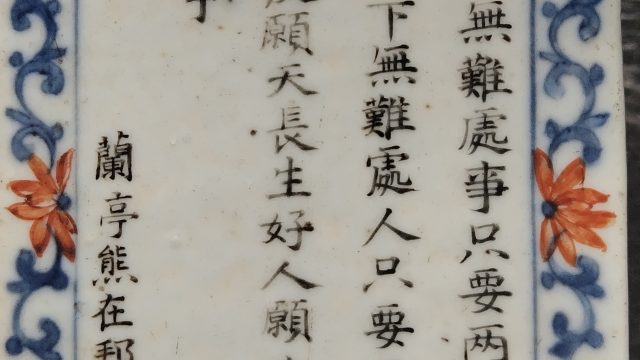 無難處事只要两
下無難處人只要
願天長生好人願
蘭亭熊在